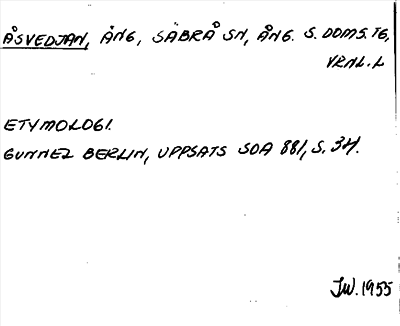 ÅSVEDJAN, ÄNG, SÄBRÅ SN, ÅNG. S. DOMS. TG,
VRNL. L
ETYMOLOGI.
GUNNEL BERLIN, UPPSATS SOA 881, S. 34.
JW. 1955